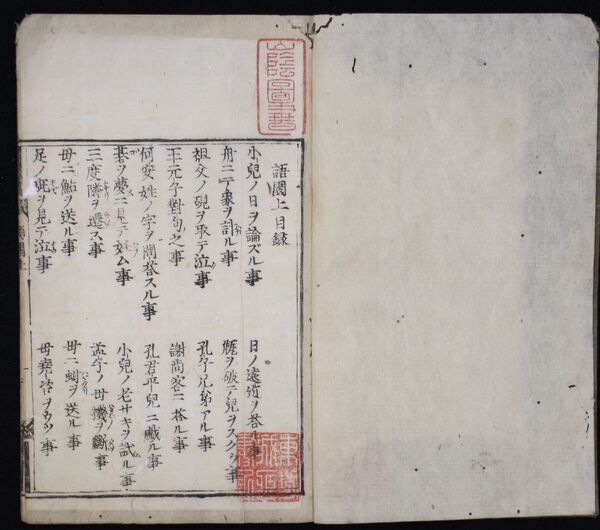 語園上目録
小兒ノ日ヲ論ズル事
日ノ遠近ヲ答ル事
舟ニテ象ヲ計ル事
ヲ破テ兒ヲスクフ事
祖父ノ硯ヲ取テ泣事
孔子兄弟アル事
王元子對句之事
謝尚客ニ答ル事
何妥姓ノ字ヲ問答スル事
孔君平兒ニ戱ル事
碁ヲ夢ニ見テ妊ム事
小兒ノ老サキヲ試ル事
三度隣ヲ遷ス事
孟子ノ母機ヲ斷事
母ニ鮎ヲ送ル事
母ニ ヲ送ル事
足ノ疵ヲ見テ泣事
母堯咨ヲウツ事